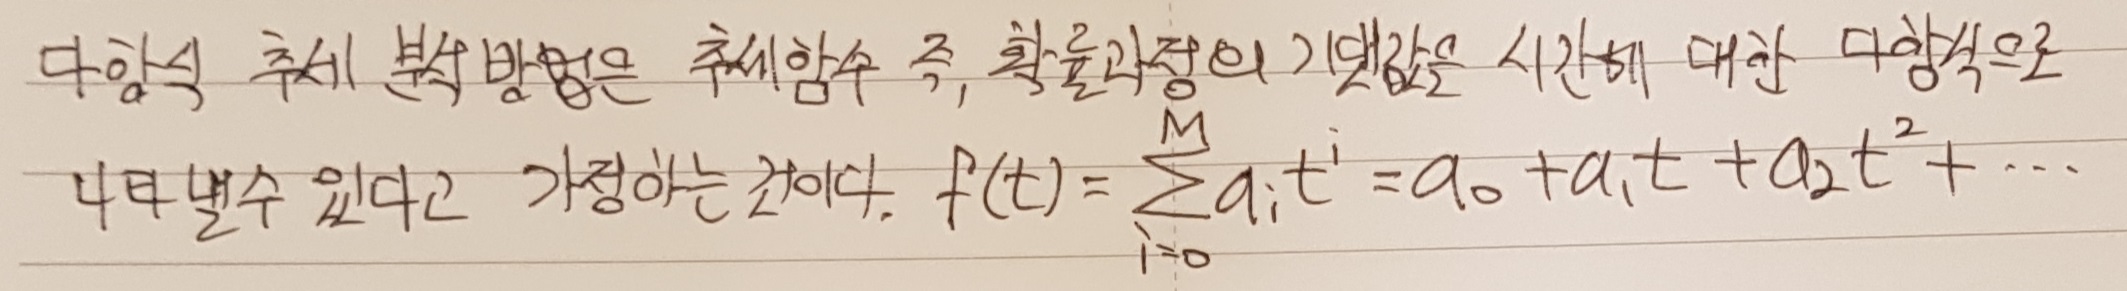 다항식 추세 분석 방법은 추세함수 즉, 확률과정의 기댓값을 시간에 대한 다항식으로
나타낼수 있다고 가정하는 것이다. f(t) = \sum_{i=0}^{M} a_i t^i = a_0 + a_1 t + a_2 t^2 + ⋯